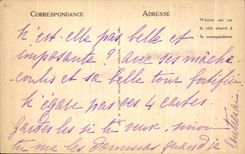 CORRESPONDANCE
ADRESSE
N'écrire que sur
le côté réservé à
la correspondance
N'est-elle pas belle et
imposante ? avec ses mâche-
coulis et sa belle tour fortifiée
N'égare pas ces 4 cartes.
Gardes les si tu veux, sinon
tu me les donneras quand je